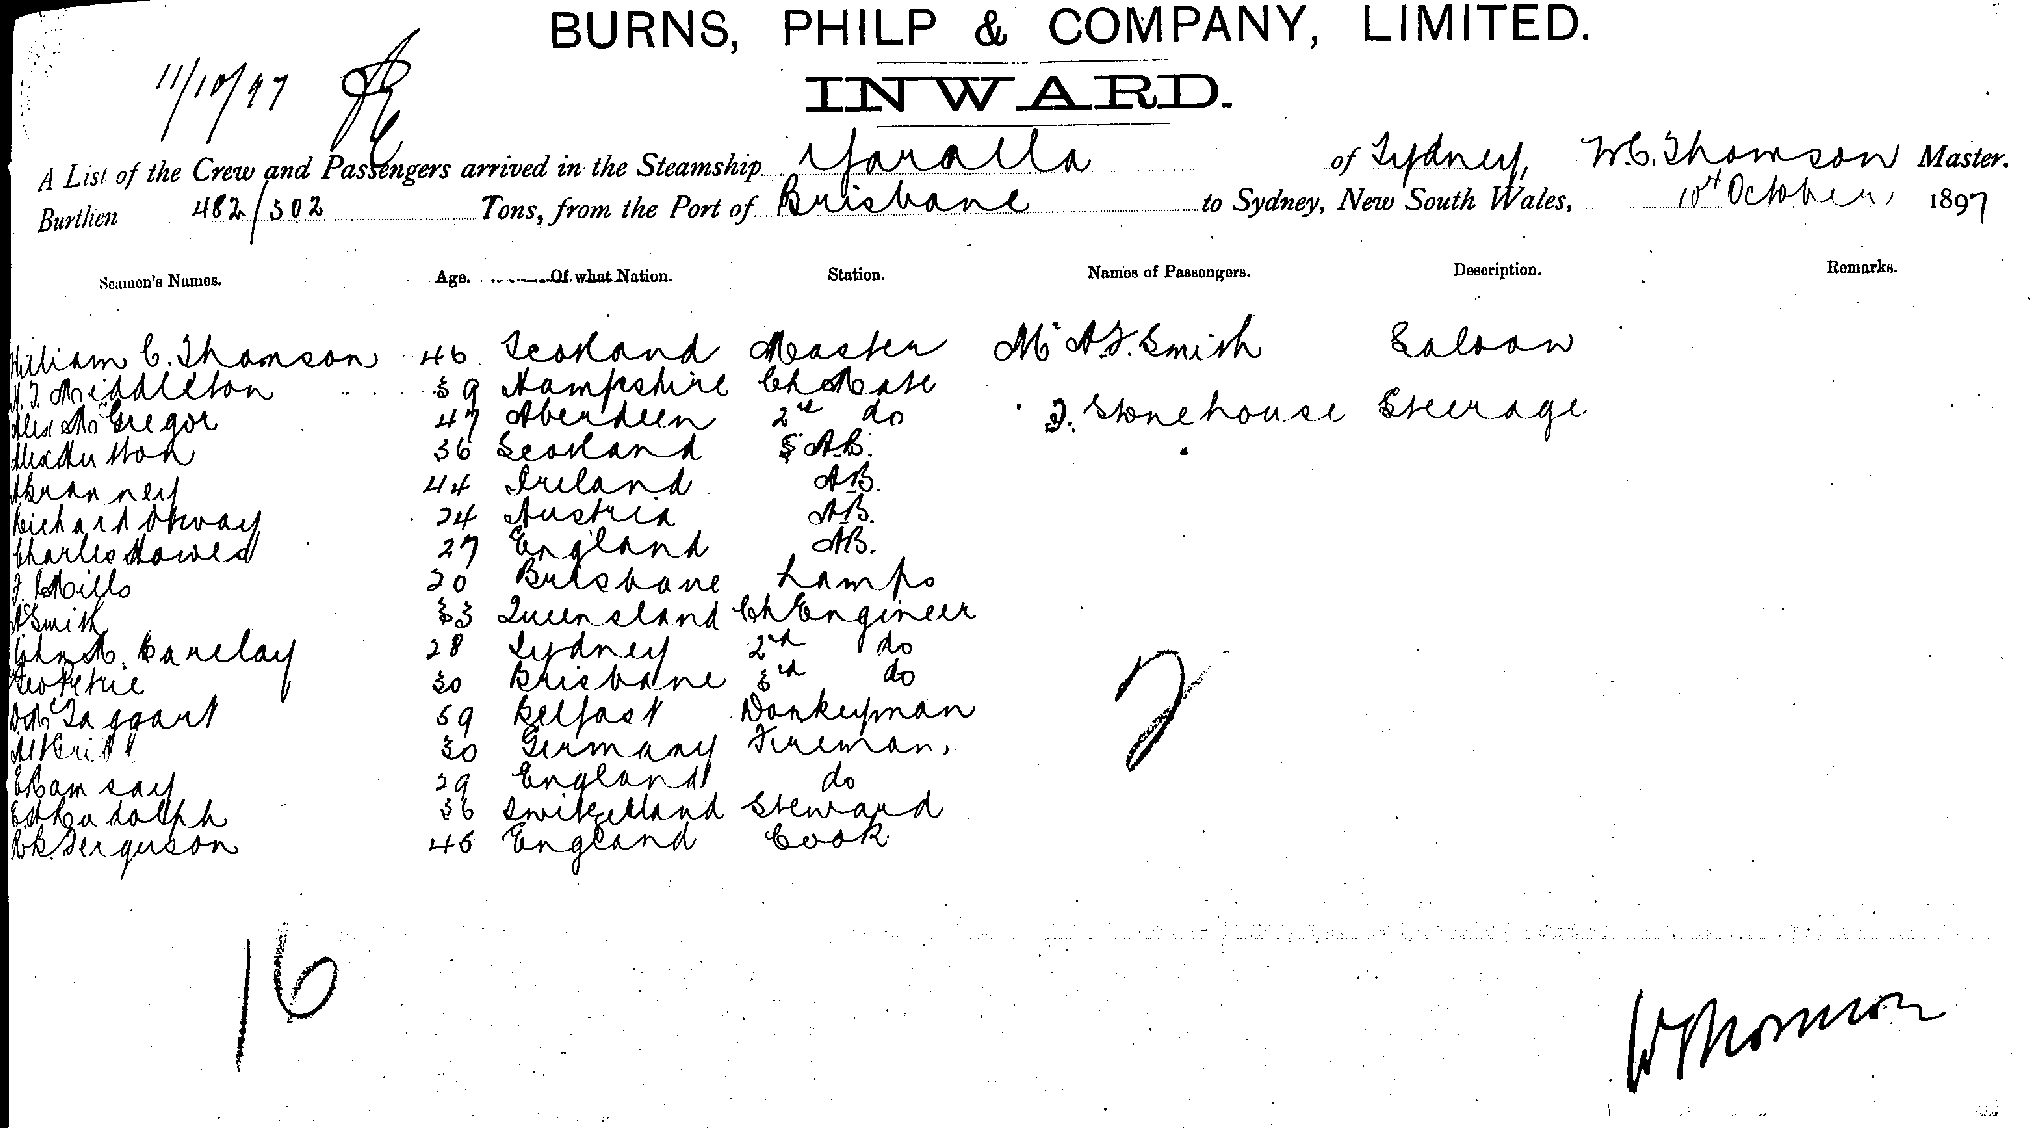 BURNS, PHILP & COMPANY, LIMITED.
INWARD.
11/10/97
A List of the Crew and Passengers arrived in the Steamship Yaralla of Sydney, W.C. Thomson Master.
Burthen 482/302 Tons, from the Port of Brisbane to Sydney, New South Wales, 10th October, 1897
Seamen's Names. Age. Of what Nation. Station. Names of Passengers. Description. Remarks.
William C. Thomson 46 Scotland Master Mr A.F. Smith Saloon
Middleton 39 Hampshire Ch Mate
Alex McGregor 47 Aberdeen 2nd do J. Stonehouse Steerage
36 Scotland A.B.
44 Ireland A.B.
Richard Otway 24 Austria A.B.
Charles Howes 27 England A.B.
Mills 20 Brisbane Lamps
A Smith 33 Queensland Ch Engineer
John A. Barclay 28 Sydney 2nd do
Geo Petrie 30 Brisbane 3rd do
McTaggart 59 Belfast Donkeyman
30 Germany Fireman,
E Ramsay 29 England do
Ed Rudolph 36 Switzelland Steward
Ferguson 46 England Cook
2
16
W Thomson